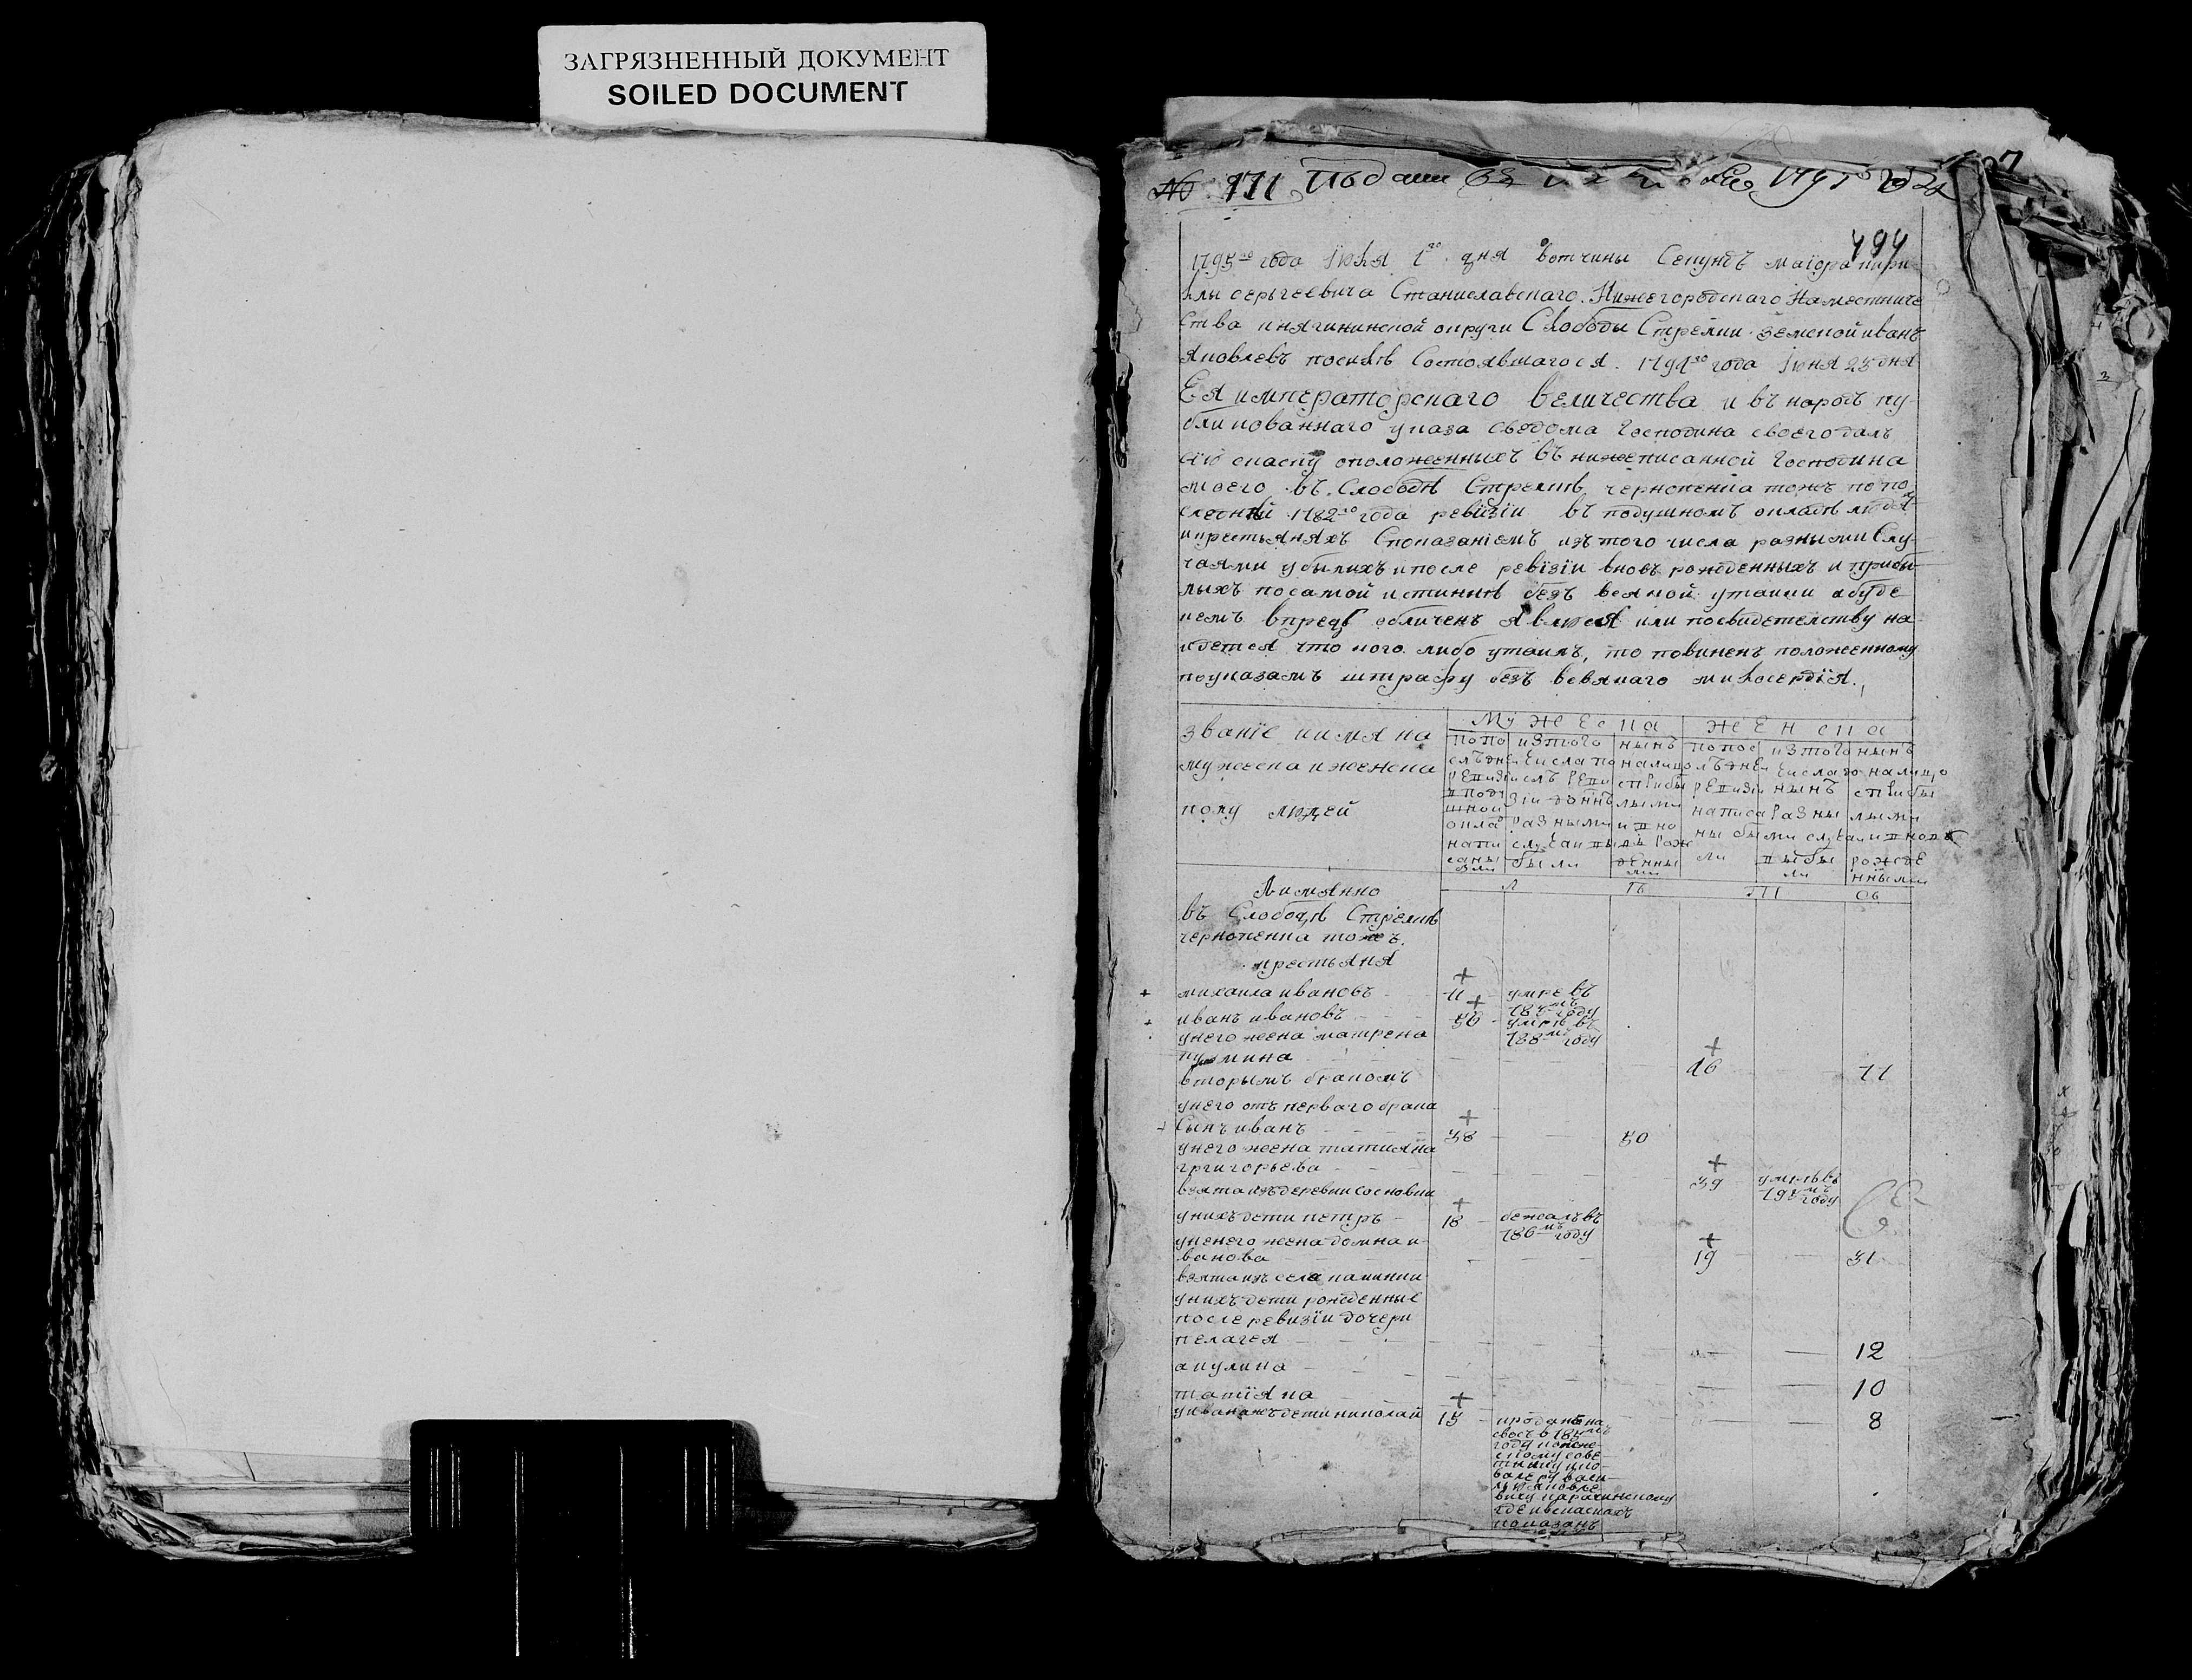 ЗАГРЯЗНЕННЫЙ ДОКУМЕНТ
SOILED DOCUMENT
№ 171 Подана 1795 года
494
1795го года Июля 1го дня вотчины Секундъ маiора кири-
лы сергеевича Станиславскаго. Нижегородскаго Наместниче
ства княгининской округи Слободы Стрелки земской иванъ
Яковлевъ посиле Состоявшагося. 1794го года Июня 23 дня
Ея императорскаго величества и въ народъ пу-
бликованнаго указа сведома Господина своего далъ
сiю скаску оположенныхъ въ нижеписанной Господина
моего въ Слободе Стрелке чернопенка тожъ по по
следней 1782го года ревизiи въ подушномъ окладе людей
икрестьянахъ Споказанiемъ изтого числа разными Слу-
чаями убылихъ ипосле ревiзiи вновъ рожденныхъ и прибы-
лыхъ посамой истинне безъ всякой утайки абуде
кемъ впредь обличенъ Явлюся или посвидетелству на-
идется что кого либо утаилъ, то повиненъ положенному
поуказамъ штрафу безъ всякаго милосердiя.
званiе иимяна
мужеска иженска
полу людей
Мужеска
женска
попо
следне
ревизи
въ поду
шной
окла
напи
саны
были
изтого
числа по
слъ реви
зiи донне
разными
случаи выбы
были
нынъ
налицо
сприбы
лыми
и вно
въ рож
денны
ми
попос
лъдней
ревизи
написа
ны бы
ли
изтого
числа до
нынъ
разны
ми случаи
выбы
ли
нынъ
налицо
сприбы
лыми
и вновъ
рожде
нными
Л
ТЪ
ТЫ
ОВ
Аимянно
въ Слободе Стрелке
чернопенка тожъ.
крестьяня
михаила ивановъ 71 умре въ
787мъ году
иванъ ивановъ 56 умре въ
788мъ году
унего жена матрена
кузмина 46 77
вторымъ бракомъ
унего отъ перваго брака
Сынъ иванъ 38 50
унего жена татияна
григорьева 39 умре въ
791мъ году
взята издеревни сосновки
унихъ дети петръ 18 бежалъ въ
786мъ году
унего жена домна и-
ванова 19 31
взята изъ села палинки
унихъ дети рожденные
после ревизiи дочери
пелагея 12
акулина 10
татiяна 8
уивана жъ дети николай 15 проданъ на
своз в 785мъ
году колеже
скому сове
тнику ика
валеру васи
лью яковле
вичу карачинскому
где ивскаскахъ
показанъ